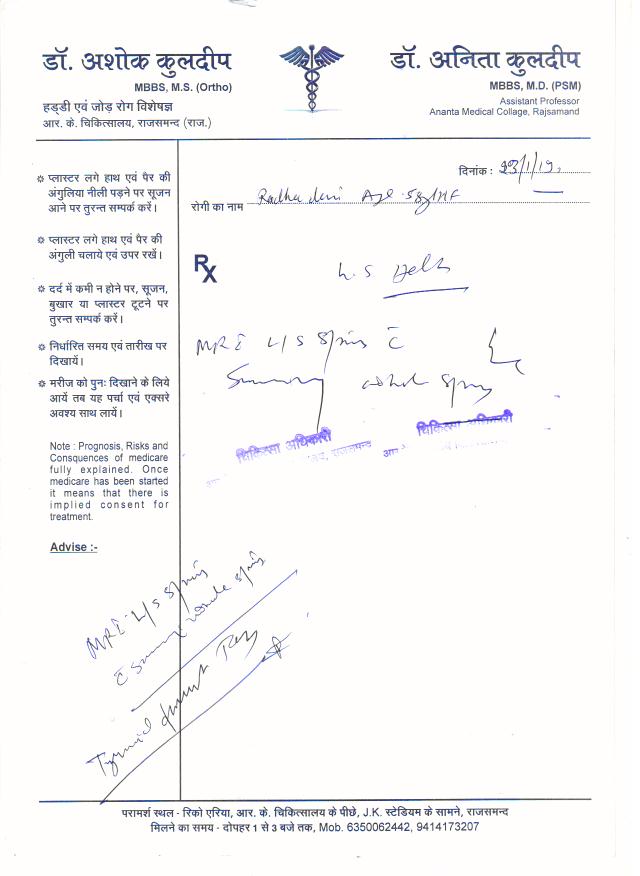 डॉ. अशोक कुलदीप
MBBS, M.S. (Ortho)
हड्डी एवं जोड़ रोग विशेषज्ञ
आर. के. चिकित्सालय, राजसमन्द (राज.)
डॉ. अनिता कुलदीप
MBBS, M.D. (PSM)
Assistant Professor
Ananta Medical Collage, Rajsamand
दिनांक : 23/1/19
रोगी का नाम Radha devi Age 58y
Rx
L.S.
MRI L/S Spine c̄
whole spine
चिकित्सा अधिकारी
राजसमन्द
चिकित्सा अधिकारी
प्लास्टर लगे हाथ एवं पैर की
अंगुलिया नीली पड़ने पर सूजन
आने पर तुरन्त सम्पर्क करें।
प्लास्टर लगे हाथ एवं पैर की
अंगुली चलाये एवं उपर रखें।
दर्द में कमी न होने पर, सूजन,
बुखार या प्लास्टर टूटने पर
तुरन्त सम्पर्क करें।
निर्धारित समय एवं तारीख पर
दिखायें।
मरीज को पुनः दिखाने के लिये
आयें तब यह पर्चा एवं एक्सरे
अवश्य साथ लायें।
Note : Prognosis, Risks and
Consquences of medicare
fully explained. Once
medicare has been started
it means that there is
implied consent for
treatment.
Advise :-
MRI L/S Spine
c̄ whole spine
परामर्श स्थल - रिको एरिया, आर. के. चिकित्सालय के पीछे, J.K. स्टेडियम के सामने, राजसमन्द
मिलने का समय - दोपहर 1 से 3 बजे तक, Mob. 6350062442, 9414173207